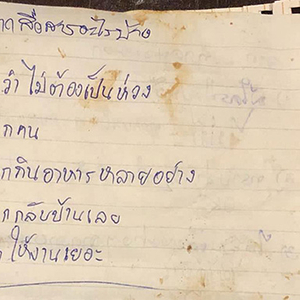 าดสื่อสารอะไรบ้าง
ว่า ไม่ต้องเป็นห่วง
กคน
กกินอาหารหลายอย่าง
กกลับบ้านเลย
ให้งานเยอะ